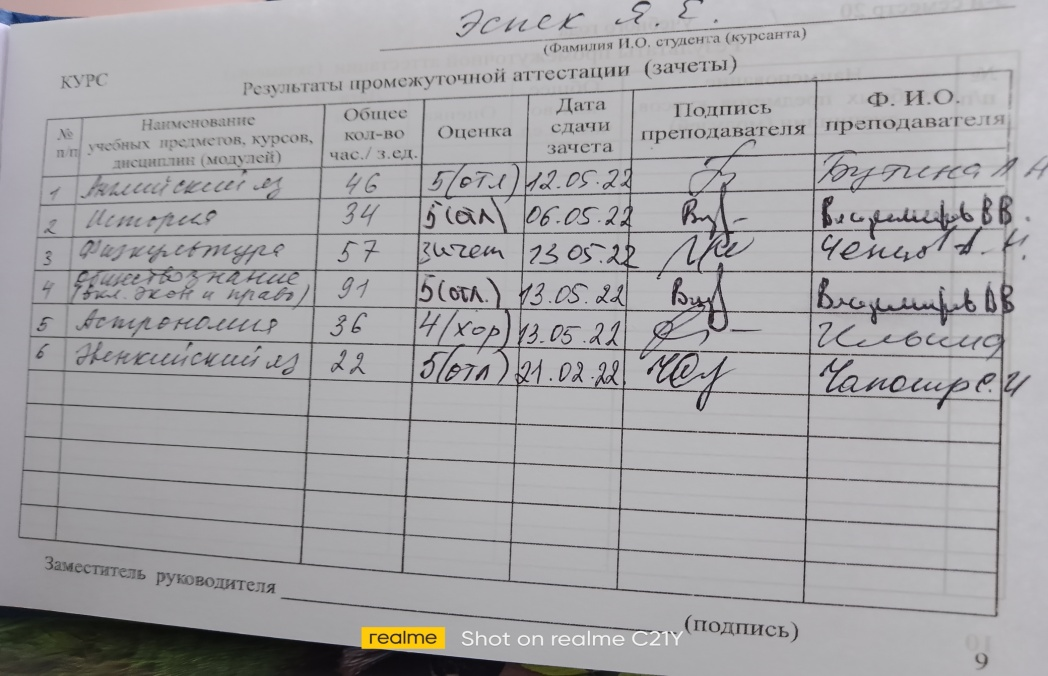 Эспек Я. Е.
(Фамилия И.О. студента (курсанта)
КУРС
Результаты промежуточной аттестации (зачеты)
№ п/п
Наименование
учебных предметов, курсов,
дисциплин (модулей)
Общее
кол-во
час./ з.ед.
Оценка
Дата
сдачи
зачета
Подпись
преподавателя
Ф. И.О.
преподавателя
1 Английский яз 46 5(отл) 12.05.22 Бутина А Н
2 История 34 5(отл) 06.05.22 Владимиров В В.
3 Физкультура 57 зачет 13.05.22
4 Обществознание
(вкл. экон и право) 91 5(отл.) 13.05.22 Владимиров В В
5 Астрономия 36 4(хор) 13.05.22
6 Эвенкийский яз 22 5(отл) 21.02.22
Заместитель руководителя
(подпись)
realme Shot on realme C21Y
9